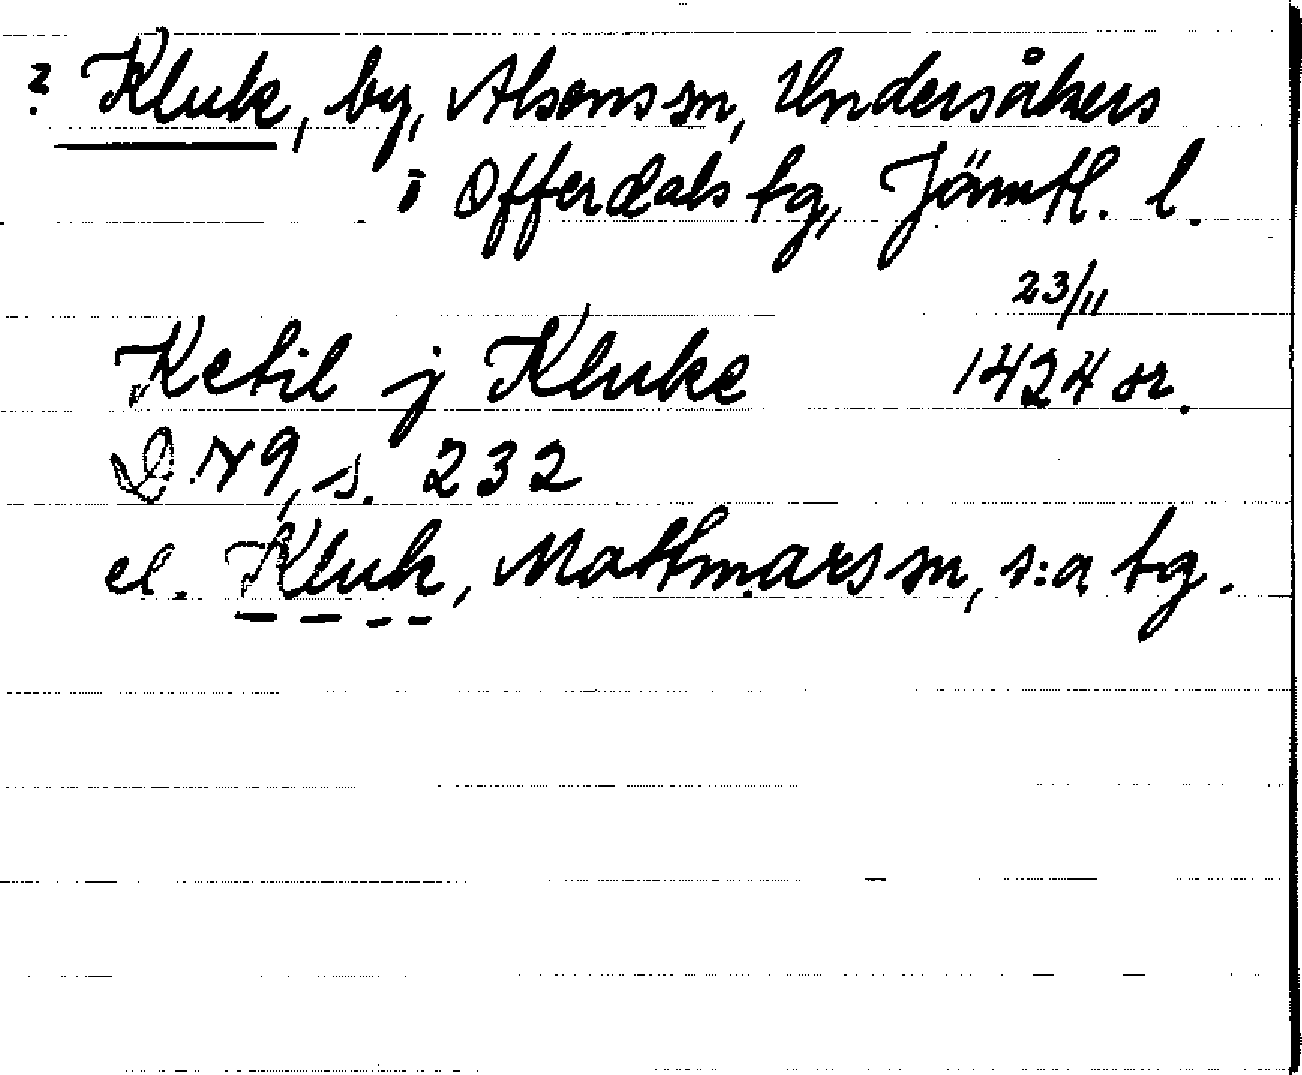 ? Kluk, by, Alsens sn, Undersåkers
o Offerdals tg, Jämtl. l.
23/11
Ketil j Kluke 1424 or.
DN 9, s. 232
el. Kluk, Mattmars sn, s:a tg.